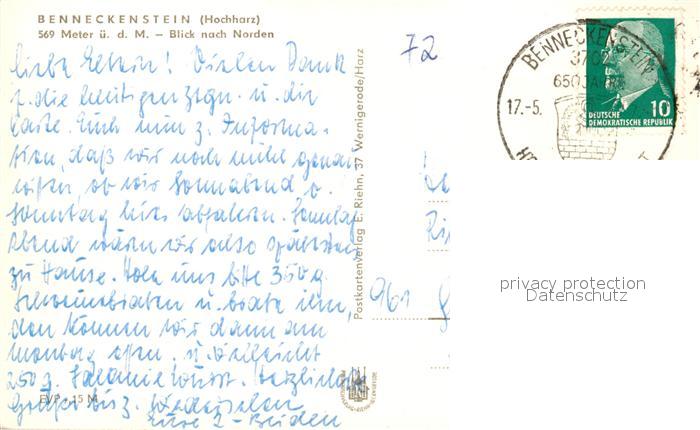 BENNECKENSTEIN (Hochharz)
569 Meter ü. d. M. – Blick nach Norden
Liebe Eltern! Vielen Dank
f. die heutigen Ztgn. u. die
Karte. Euch nun z. Informa-
tion, daß wir noch nicht genau
wissen, ob wir Sonnabend o.
Sonntag hier abfahren. Sonntag
Abend wären wir also spätestens
zu Hause. Hole uns bitte 350 g
Schweinebraten u. brate ihn,
den können wir dann am
Montag essen. u. vielleicht
250 g. Salamiewurst. Herzliche
Grüße bis z. Wiedersehen
Eure 2 - Beiden
EVP -.15 M
Postkartenverlag E. Riehn, 37 Wernigerode/Harz
72
961
BENNECKENSTEIN
3702
650 JAHRE
17.-5.
10
DEUTSCHE
DEMOKRATISCHE REPUBLIK
privacy protection
Datenschutz